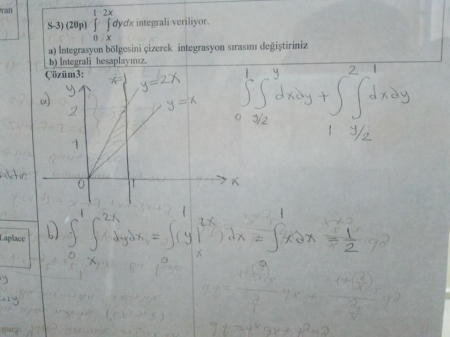 S-3) (20p) ∫₀¹ ∫ₓ²ˣ dydx integrali veriliyor.
a) Integrasyon bölgesini çizerek integrasyon sırasını değiştiriniz
b) Integrali hesaplayınız.
Çözüm3:
a) y x=1 y=2x y=x
2
1
0 1 x
∫₀¹ ∫_{y/2}^{y} dxdy + ∫₁² ∫_{y/2}^{1} dxdy
b) ∫₀¹ ∫ₓ²ˣ dydx = ∫₀¹ (y|ₓ²ˣ) dx = ∫₀¹ xdx = 1/2
Laplace